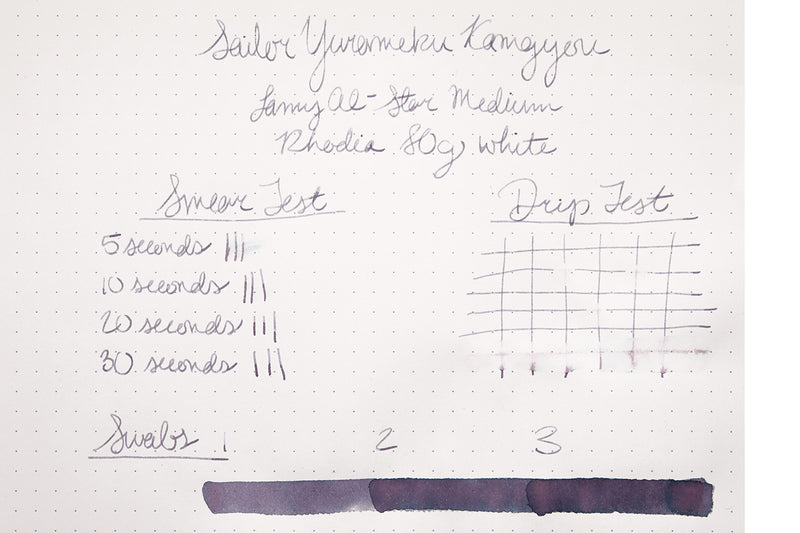 Sailor Yurameku Kangyou
Lamy Al-Star Medium
Rhodia 80g white
Smear Test
Drip Test
5 seconds
10 seconds
20 seconds
30 seconds
Swabs 1 2 3